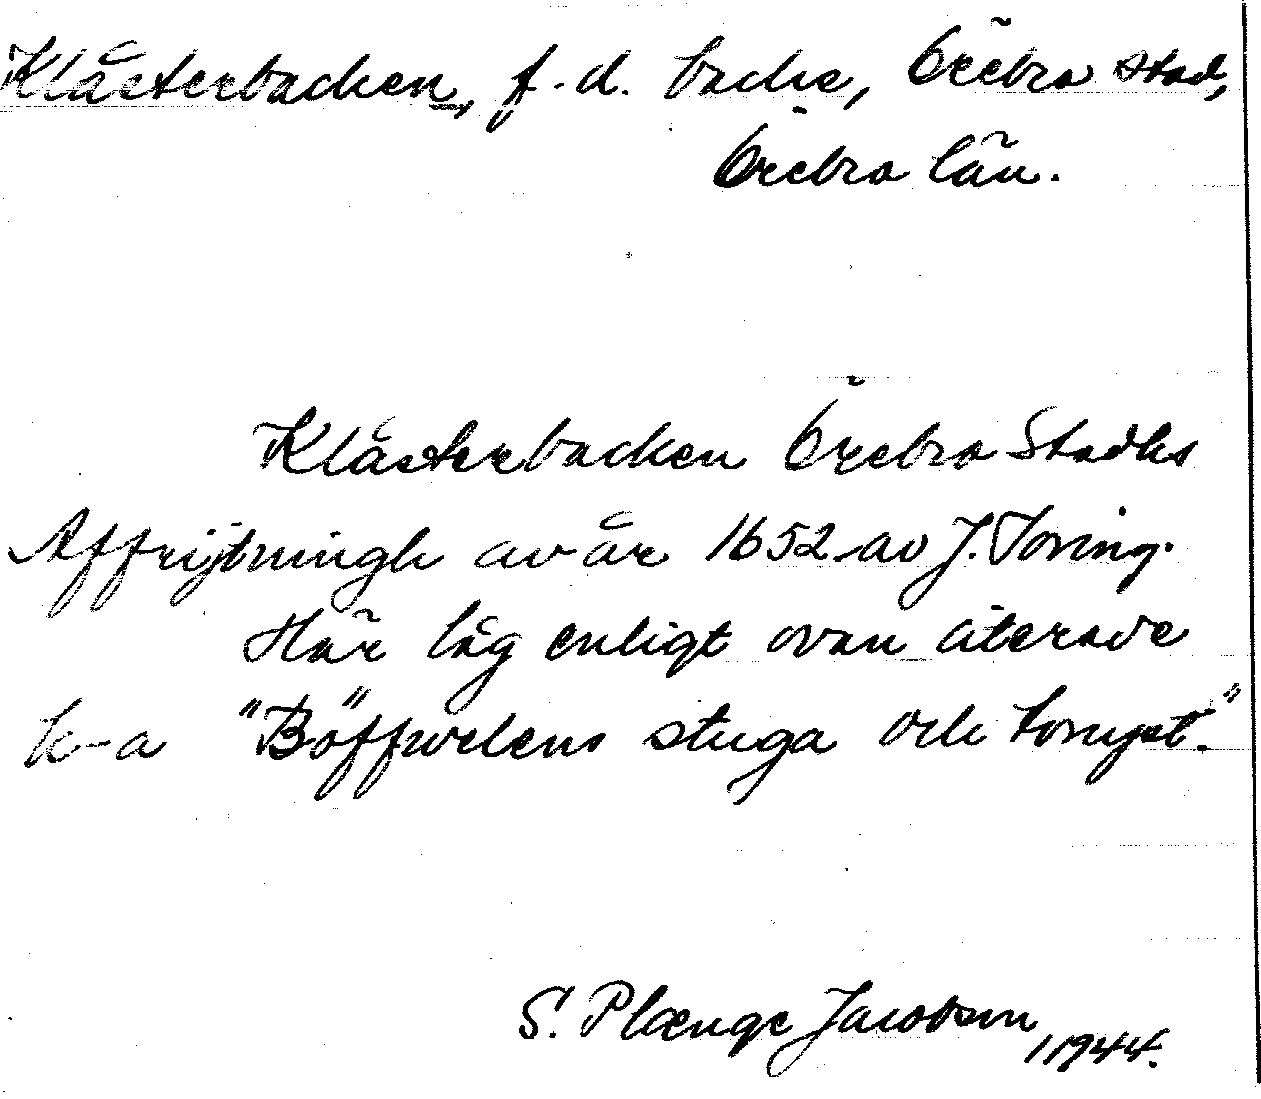 Klåsterbacken, f.d. backe, Örebro stad,
Örebro län.
Klåsterbacken Örebro Stadhs
Affrijtningh av år 1652 av J. Toring.
Här låg enligt ovan citerade
k-a "Böffwelens stuga och tompt."
S. Plænge Jacobson 1944.